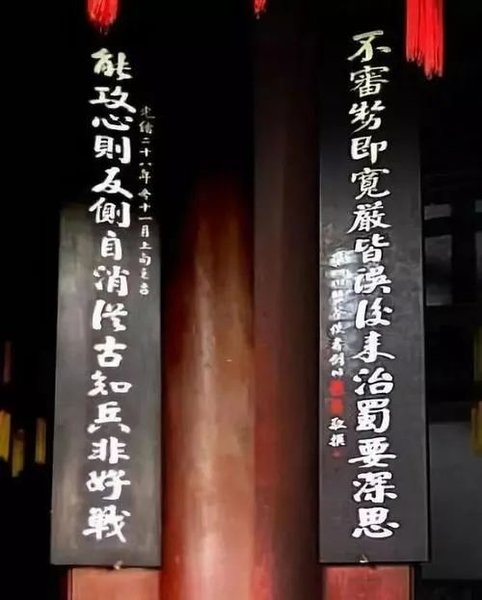 能攻心則反側自消從古知兵非好戰
光緒二十八年冬十一月上旬之吉
不審势即寬厳皆誤後来治蜀要深思
使者劍川
敬撰